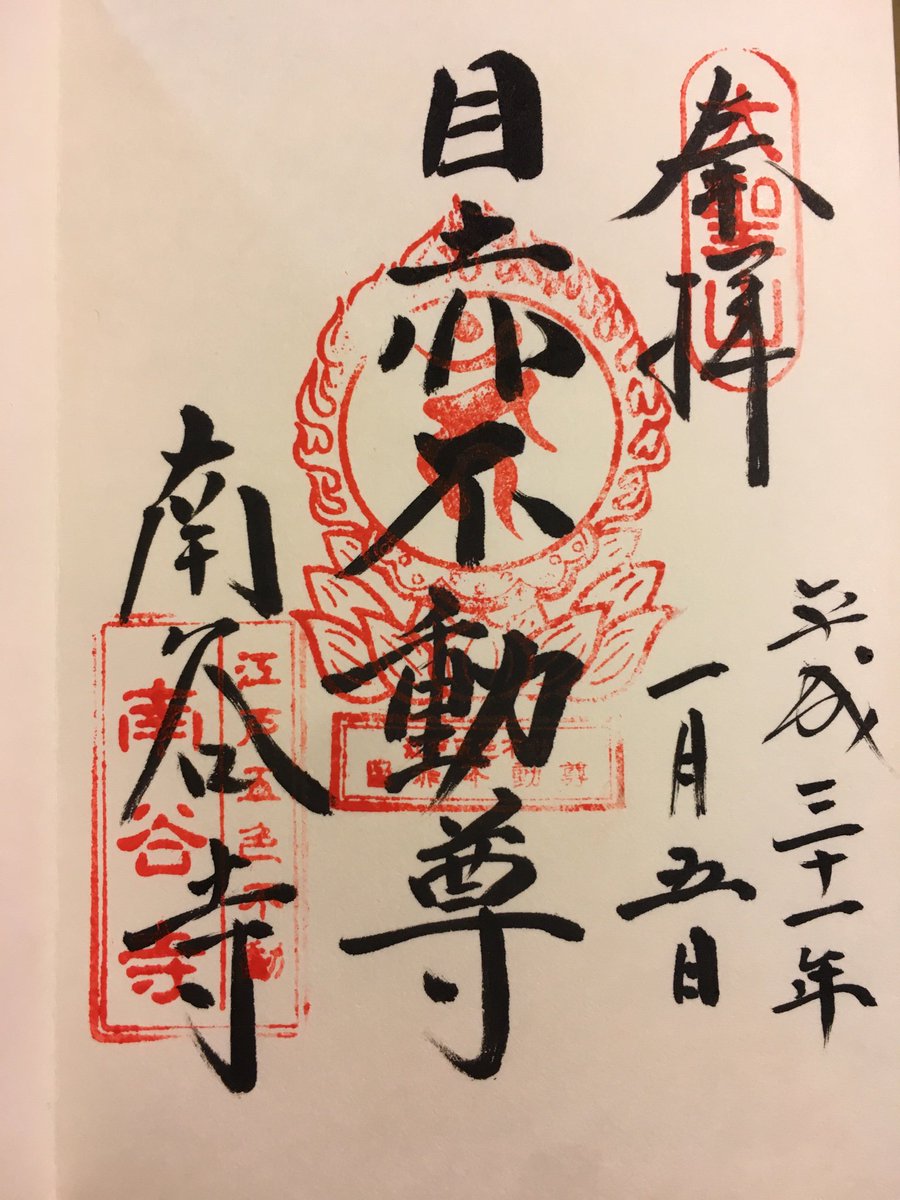 奉拝
大聖山
平成三十一年
一月五日
目赤不動尊
南谷寺
江戸五色不動
南谷寺